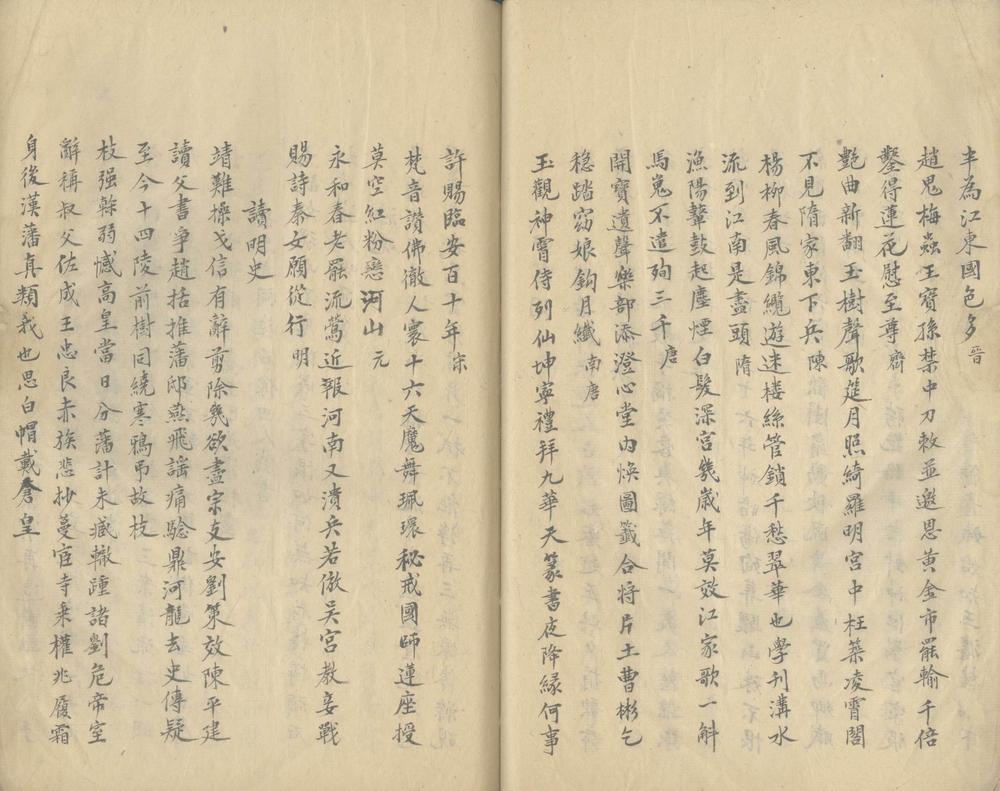 丰為江東國色多晉
趙鬼梅蟲王寶孫禁中刀敕並邀恩黄金市罷輸千倍
鑿得蓮花慰至尊齊
艷曲新翻玉樹聲歌筵月照綺羅明宫中枉築凌霄閣
不見隋家東下兵陳
楊柳春風錦纜遊迷樓絲管鎖千愁翠華也學刊溝水
流到江南是盡頭隋
漁陽鼙鼓起塵煙白髮深宫幾歲年莫效江家歌一斛
馬嵬不遣殉三千唐
開寶遺聲樂部添澄心堂内煥圖籤合將片土曹彬乞
穏踏窈娘鈎月纖南唐
玉觀神霄侍列仙坤寧禮拜九華天篆書夜降緣何事
許賜臨安百十年宋
梵音讚佛徹人寰十六天魔舞珮環秘戒國師蓮座授
莫空紅粉戀河山元
永和春老罷流鶯近報河南又潰兵若倣吳宫教妾戰
賜詩秦女願從行明
讀明史
靖難操戈信有辭剪除幾欲盡宗支安劉策效陳平建
讀父書爭趙括推藩邸燕飛謡痛騐鼎河龍去史傳疑
至今十四陵前樹同繞寒鴉弔故枝
枝强榦弱憾高皇當日分藩計未臧轍踵諸劉危帝室
辭稱叔父佐成王忠良赤族悲抄蔓宦寺乗權兆履霜
身後漢藩真類我也思白帽戴倉皇